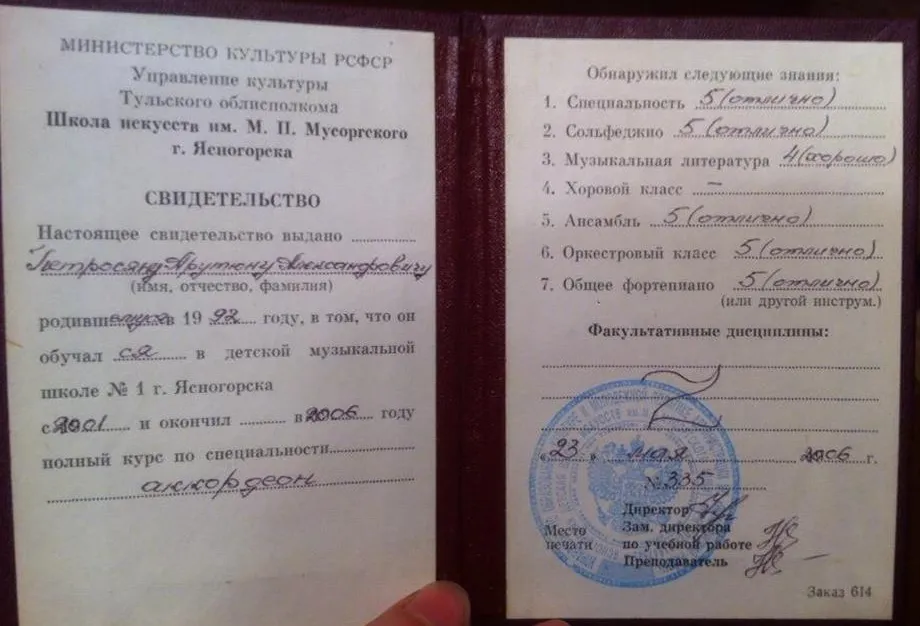 МИНИСТЕРСТВО КУЛЬТУРЫ РСФСР
Управление культуры
Тульского облисполкома
Школа искусств им. М. П. Мусоргского
г. Ясногорска
СВИДЕТЕЛЬСТВО
Настоящее свидетельство выдано
Петросяну Арутюну Александровичу
(имя, отчество, фамилия)
родившемуся в 19 92 году, в том, что он
обучал ся в детской музыкальной
школе № 1 г. Ясногорска
с 2001 и окончил в 2006 году
полный курс по специальности
аккордеон
Обнаружил следующие знания:
1. Специальность 5 (отлично)
2. Сольфеджио 5 (отлично)
3. Музыкальная литература 4 (хорошо)
4. Хоровой класс –
5. Ансамбль 5 (отлично)
6. Оркестровый класс 5 (отлично)
7. Общее фортепиано 5 (отлично)
(или другой инструм.)
Факультативные дисциплины:
« 23 » мая 2006 г.
№ 335
Директор
Место печати
Зам. директора
по учебной работе
Преподаватель
Заказ 614